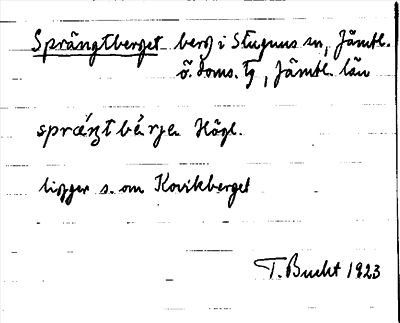 Sprängtberget berg i Stuguns sn, Jämtl.
ö. doms. tg, Jämtl. län
sprǽŋtbærje Högl.
ligger s. om Kovikberget
T. Bucht 1923